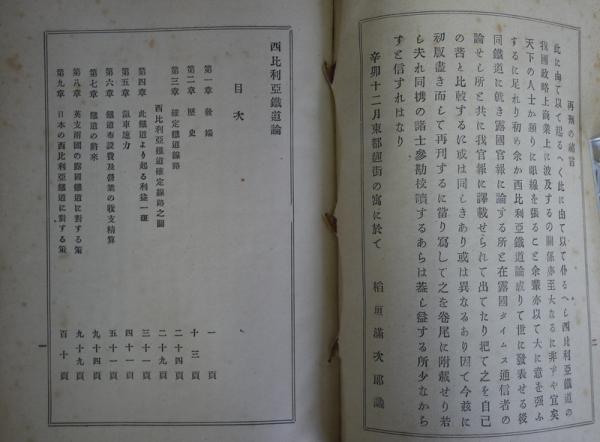 再刊の緒言
此に由て以て起るへく此に由て以て仆るへし西比利亞鐵道の
我國政略上商業上に波及するの關係亦至大なるに非すや宜矣
天下の人士か頻りに眼線を張ること余輩亦以て大に意を强ふ
するに足れり初め余か西比利亞鐵道論成りて世に發表せる後
同鐵道に就き露國官報に論する所と在露國タイムス通信者の
論せし所と共に我官報に譯載せられて出てたり把て之を自己
の著と比較するに或は同しきあり或は異なるあり因て今玆に
初版盡き而して再刊するに當り寫して之を卷尾に附載せり若
し夫れ同携の諸士參勘校讀するあらは蓋し益する所少なから
すと信すれはなり
辛卯十二月東都麴街の寓に於て
稻垣滿次郎識
二
西比利亞鐵道論
目次
第一章 發端 一頁
第二章 歷史 十三頁
第三章 確定鐵道線路 二十四頁
西比利亞鐵道確定線路之圖 二十九頁
第四章 此鐵道より起る利益一斑 三十一頁
第五章 滊車速力 四十一頁
第六章 鐵道布設費及營業の收支精算 五十一頁
第七章 鐵道の將來 九十四頁
第八章 英支兩國の露國鐵道に對する策 九十九頁
第九章 日本の西比利亞鐵道に對する策 百十頁
一